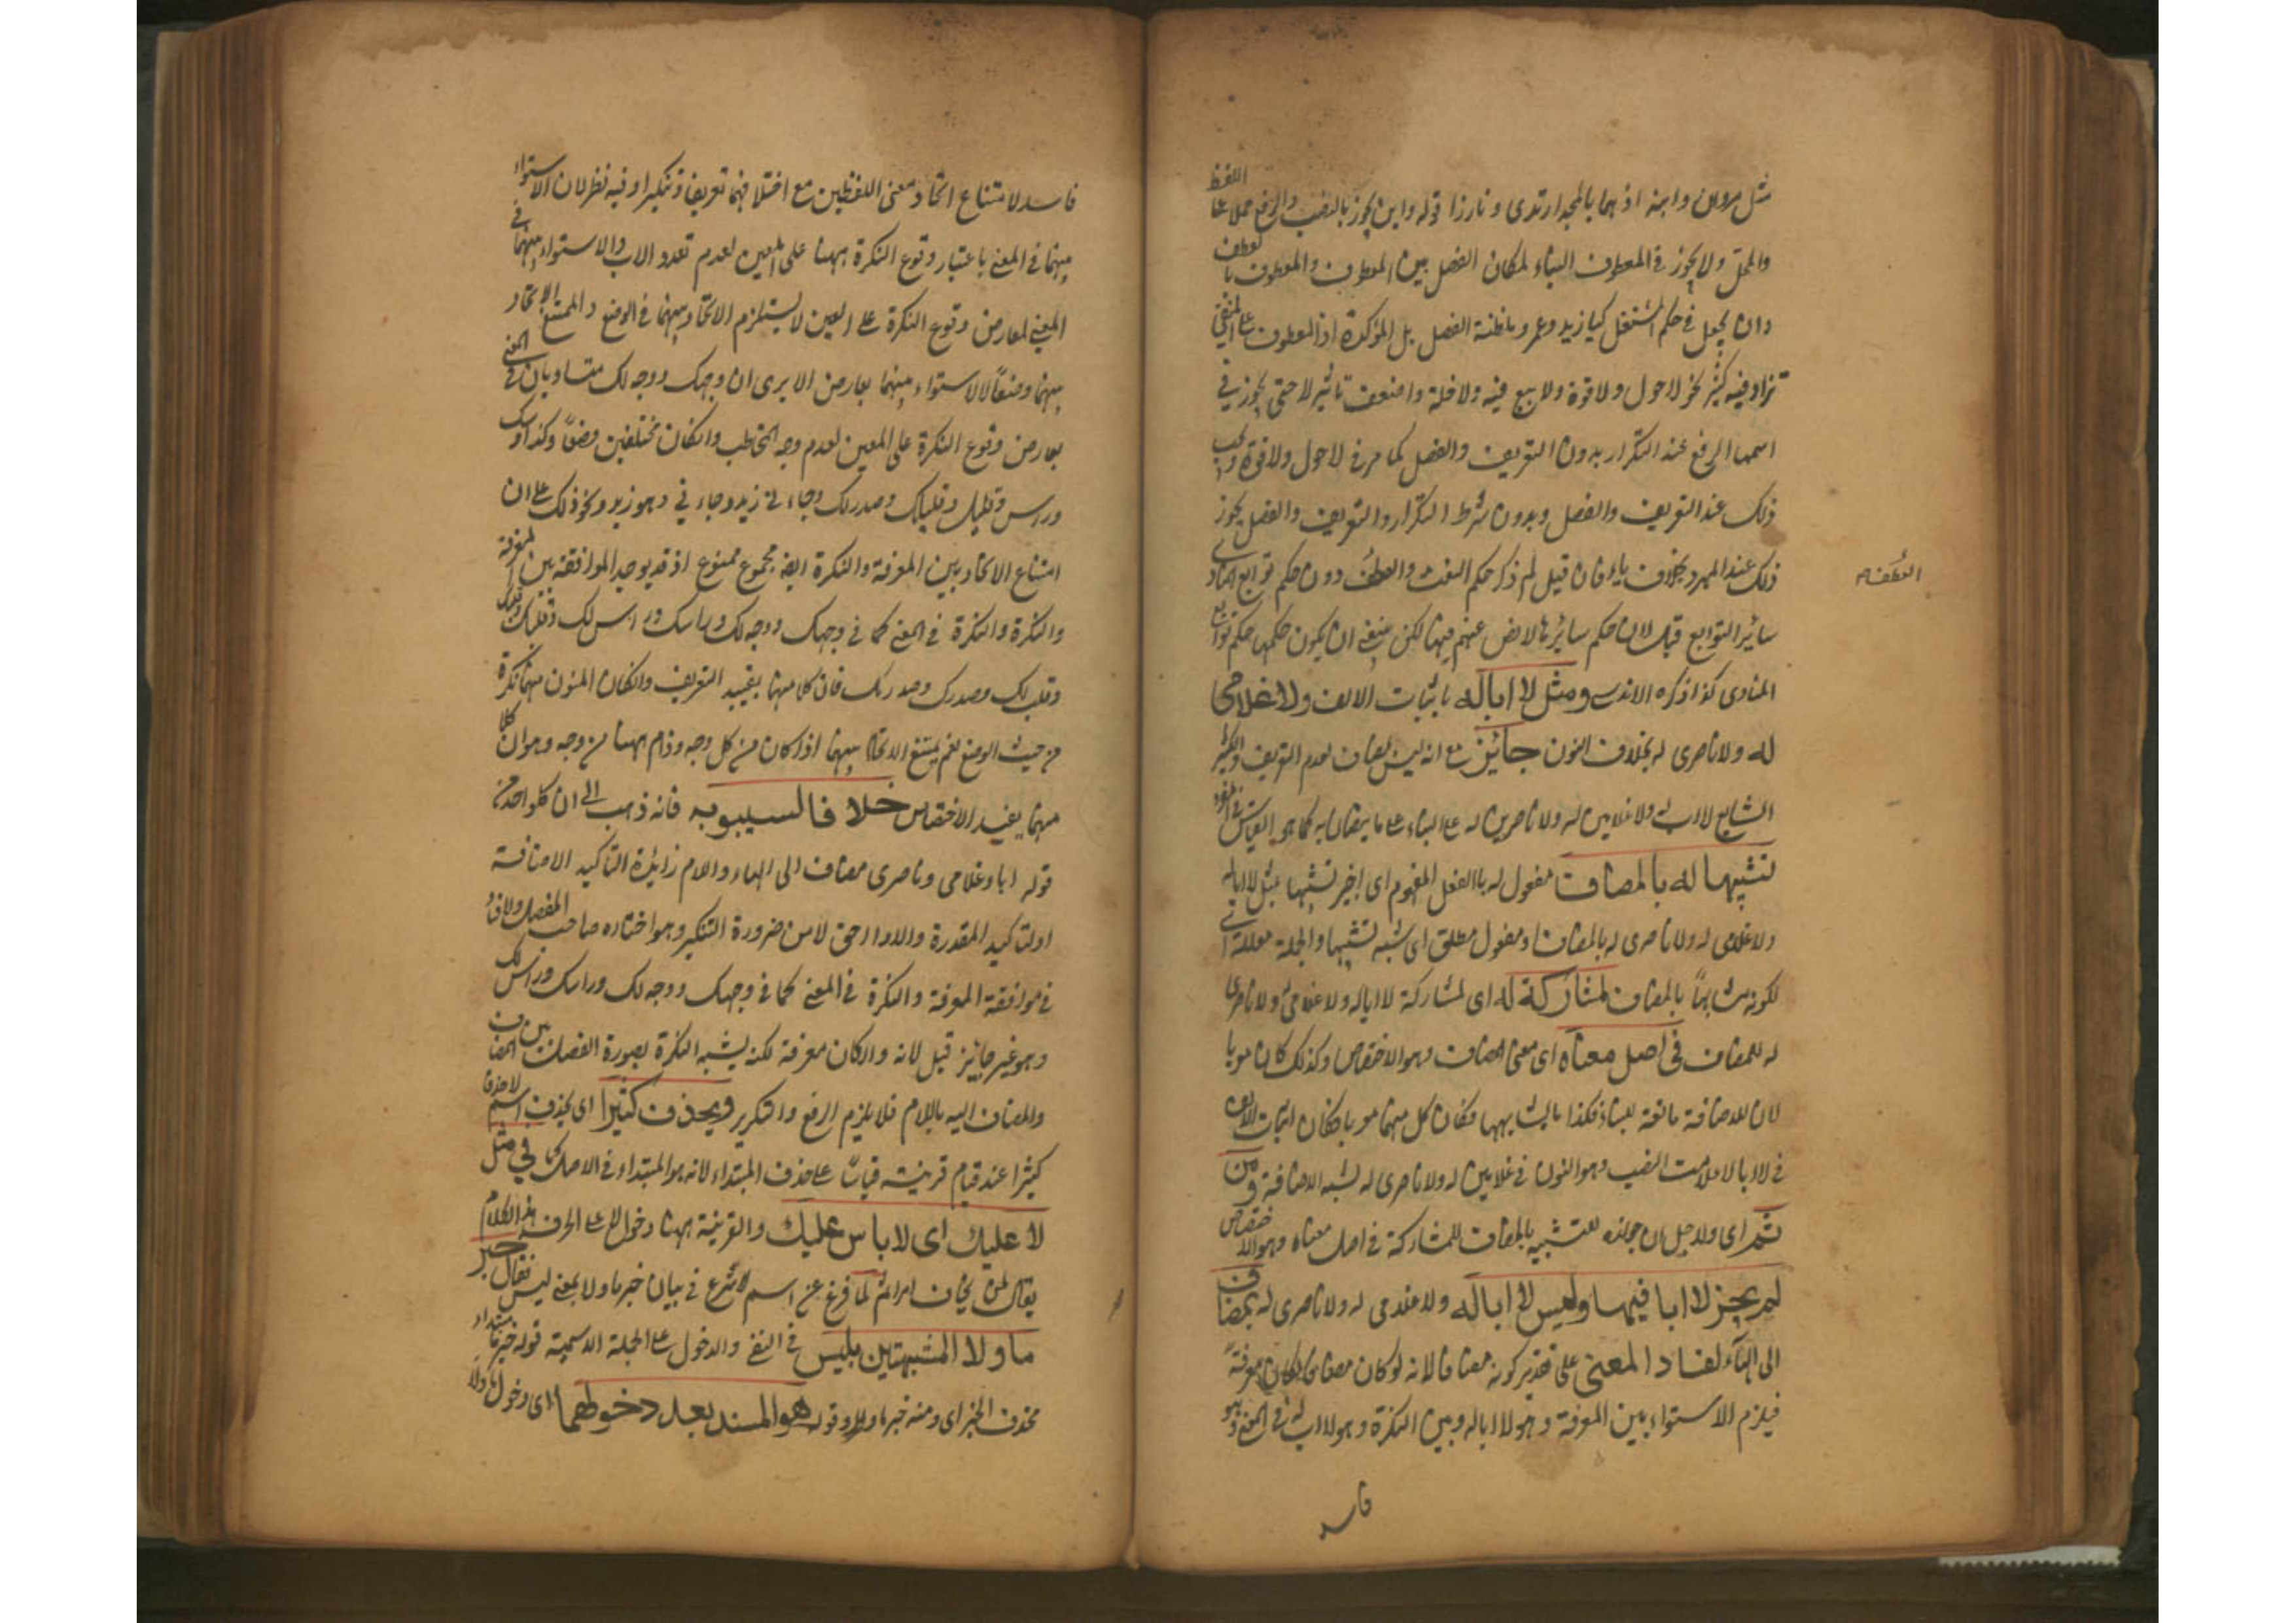 مثل مروان وابنه اذ هما بالمجد ارتدى وتازرا قوله وابن يجوز بالنصب والرفع حملا على اللفظ
والمحل ولا يجوز في المعطوف البناء لمكان الفصل بين المعطوف والمعطوف بالعطف
وان يجعل في حكم المستقل كيا زيد وعمرو مظنة الفصل بل المؤكدة اذ المعطوف على المنفي
تزاد فيه كثير نحو لا حول ولا قوة ولا بيع فيه ولا خلة واضعف تاثير لا حتى يجوز في
اسمها الرفع عند التكرار بدون التعريف والفصل كما مر في لا حول ولا قوة ويجب
ذلك عند التعريف والفصل وبدون شرط التكرار والتعريف والفصل يجوز
ذلك عند المبرد بخلاف يا فان قيل لم ذكر حكم النعت والعطف دون حكم توابع المنادى
العطف
سائر التوابع قيل لان حكم سائرها لا نص عنهم فيها لكن ينبغي ان يكون حكمها حكم توابع
المنادى كذا ذكره الاندلسي ومثل لا ابا له باثبات الالف ولا غلامي
له ولا ناصري له بحذف النون جائز مع انه ليس بمضاف لعدم التعريف والكثير
الشايع لا اب له ولا غلامين له ولا ناصرين له على البناء على ما ينصبان به كما هو القياس في المفرد
تشبيها له بالمضاف مفعول له بالفعل المفهوم اى اخير تشبيها بمثل لا ابا له
ولا غلامي له ولا ناصري له بالمضاف او مفعول مطلق اى شبه تشبيها والجملة معللة اى
لكونه مشابها بالمضاف لمشاركته له اى لمشاركة لا ابا له ولا غلامي له ولا ناصري
له للمضاف في اصل معناه اى معنى المضاف وهو الاختصاص وكذلك كان معربا
لان الاضافة مانعة للبناء فكذا ما يشابهها فكان كل منهما معربا فكان اثبات الالف
في لا ابا لا علامت النصب وهو النون في غلامين له ولا ناصري له لشبه الاضافة ومن
ثم اى ولاجل ان جوازه للتشبيه بالمضاف للمشاركة في اصل معناه وهو الاختصاص
لم يجز لا ابا فيها وليس لا ابا له ولا غلامي له ولا ناصري له بمضاف
الى الهاء لفساد المعنى على تقدير كونه مضافا لانه لو كان مضافا لكان معرفة
فيلزم الاستواء بين المعرفة وهو لا ابا له وبين النكرة وهو لا اب له في المعنى وهو
فاسد
فاسد لامتناع اتحاد معنى اللفظين مع اختلافهما تعريفا وتنكيرا وفيه نظر لان الاستواء
بينهما في المعنى باعتبار وقوع النكرة ههنا على المعين لعدم تعدد الاب والاستواء بينهما في
المعنى لعارض وقوع النكرة على العين لا يستلزم الاتحاد بينهما في الوضع والممتنع الاتحاد
بينهما وضعا لا الاستواء بينهما بعارض الا يرى ان وجهك ووجه لك متساويان في المعنى
بعارض وقوع النكرة على المعين لعدم وجه المخاطب وان كان مختلفين وضعا وكذا راسك
وراس وقلبك وقلب لك وصدر لك وجاء في زيد وجاء في وهو زيد ونحو ذلك على ان
امتناع الاتحاد بين المعرفة والنكرة ايضا مجموع ممنوع اذ قد يوجد الموافقة بين المعرفة
والنكرة والنكرة في المعنى كما في وجهك ووجه لك وراسك وراس لك وقلبك
وقلب لك وصدرك وصدر لك فان كلا منهما يفيد التعريف وان كان المنون منهما نكرة
من حيث الوضع نعم يمتنع الاتحاد بينهما اذا كان من كل وجه وذام ههنا من وجه وهو ان كلا
منهما يفيد الاختصاص خلافا لسيبويه فانه ذهب الى ان كلا واحد من
قوله ابا وغلامي وناصري مضاف الى الهاء واللام زائدة لتاكيد الاضافة
او لتاكيد المقدرة والاوا احق لا من ضرورة التنكير وهو اختاره صاحب المفصل ولا فساد
في موافقة المعرفة والنكرة في المعنى كما في وجهك ووجه لك وراسك وراس لك
وهو غير جائز قيل لانه وان كان معرفة لكنه يشبه النكرة بصورة الفصل بين المضاف
والمضاف اليه باللام فلا يلزم الرفع والتكرير ويحذف كثيرا اى يحذف اسم لا حذفا
كثيرا عند قيام قرينة قياسا على حذف المبتداء لانه هو المبتداء في الاصل كما في مثل
لا عليك اى لا باس عليك والقرينة ههنا دخول لا على الحرف هذا الكلام
يقال لمن يخاف امرا ثم لما فرغ عن اسم لا شرع في بيان خبر ما ولا بمعنى ليس فقال خبر
ما ولا المشبهتين بليس في النفي والدخول على الجملة الاسمية قوله خبر ما مبتداء
محذوف الخبر اى ومنه خبر ما ولا وقوله هو المسند بعد دخولهما اى دخول ما ولا